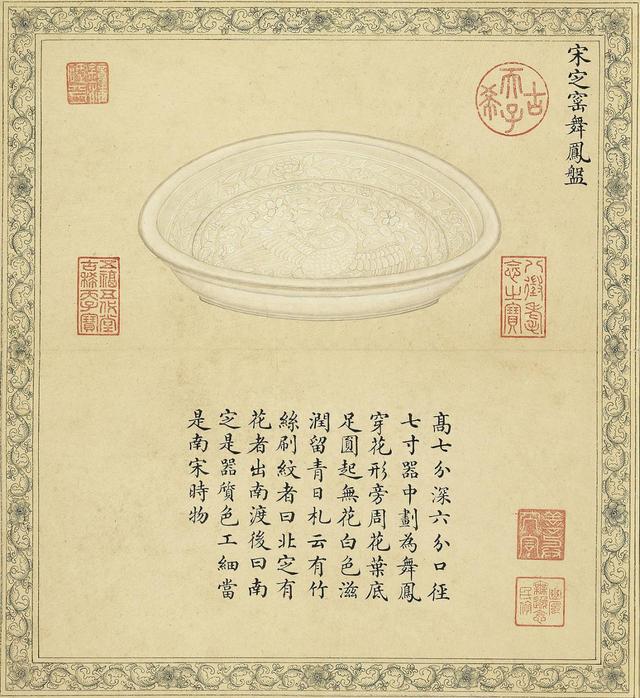 宋㝎窑舞鳳盤
古希天子
八徵耄念之寶
五福五代堂古稀天子寶
髙七分深六分口徑
七寸器中劃為舞鳳
穿花形旁周花葉底
足圓起無花白色滋
潤留青日札云有竹
絲刷紋者曰北㝎有
花者出南渡後曰南
㝎是器質色工細當
是南宋時物